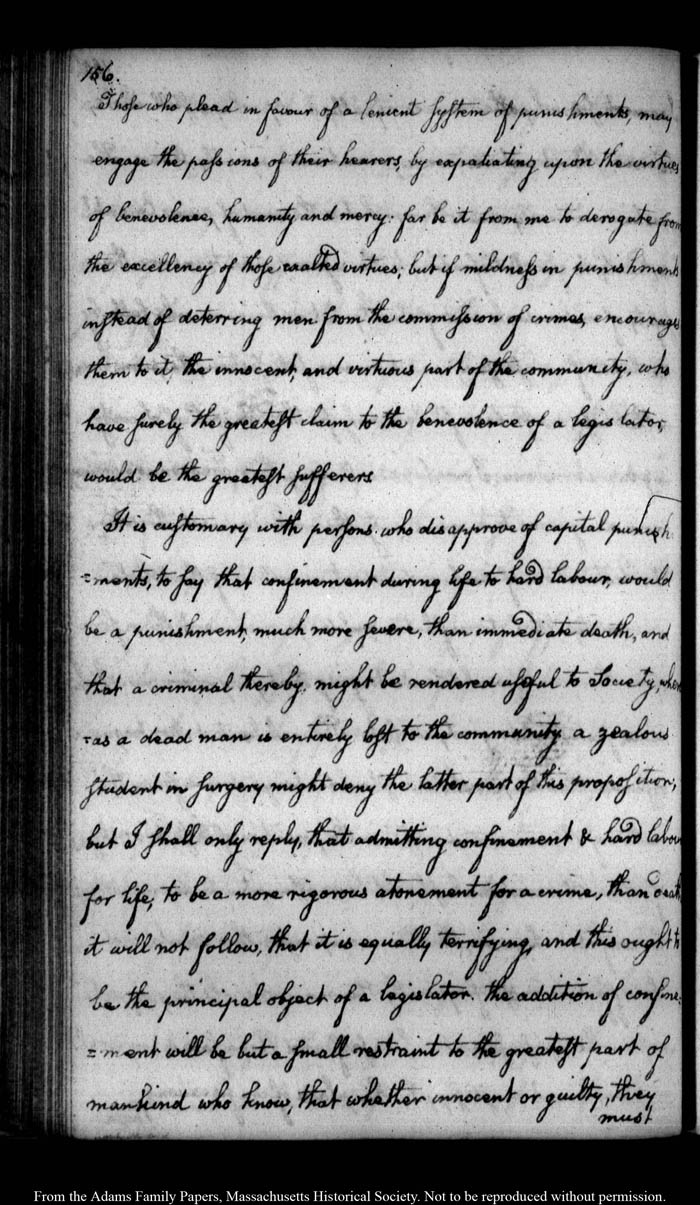 156.
Those who plead in favour of a lenient system of punishments, may
engage the passions of their hearers, by expatiating upon the virtues
of benevolence, humanity and mercy: far be it from me to derogate from
the excellency of those exalted virtues; but if mildness in punishments
instead of deterring men from the commission of crimes, encourages
them to it, the innocent, and virtuous part of the community, who
have surely the greatest claim to the benevolence of a legislator,
would be the greatest sufferers
It is customary with persons who disapprove of capital punish
=ments, to say that confinement during life to hard labour, would
be a punishment, much more severe, than immediate death, and
that a criminal thereby might be rendered useful to Society, where
=as a dead man is entirely lost to the community a zealous
student in surgery might deny the latter part of this proposition;
but I shall only reply, that admitting confinement & hard labour
for life, to be a more rigorous atonement for a crime, than death
it will not follow, that it is equally terrifying, and this ought to
be the principal object of a legislator. the addition of confine=
=ment will be but a small restraint to the greatest part of
mankind who know, that whether innocent or guilty, they
must
From the Adams Family Papers, Massachusetts Historical Society. Not to be reproduced without permission.